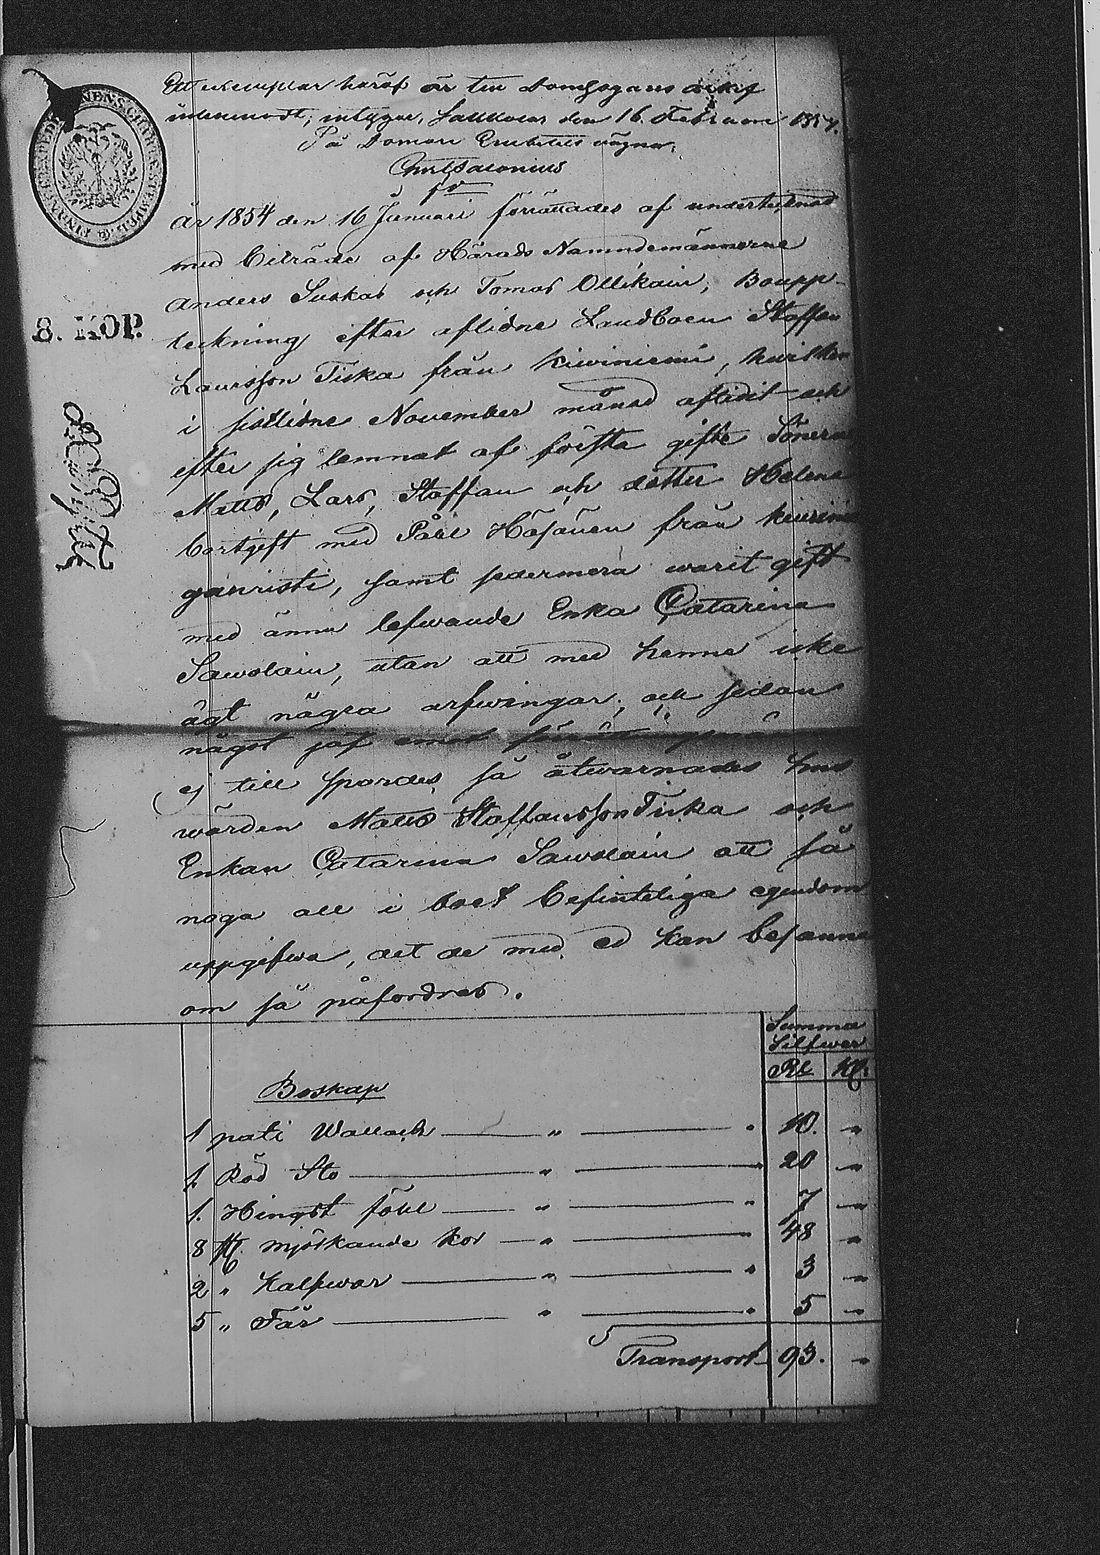 Ett exemplar häraf är till Domsagans arkif
inlemnadt; intygar, Sakkola den 16. Februari 1854.
På Domare Embetets vägnar:
År 1854 den 16 Januari förrättades af undertecknad
med biträde af Härads Nämndemännerne
Anders Suskas och Tomas Ollikain, Boupp-
teckning efter aflidne Landboen Staffan
Laursson Tiska från Kiwiniemi, hwilken
i sistlidne November månad aflidit och
efter sig lemnat af första gifte Sönerne
Matts, Lars, Staffan och dotter Helena
bortgift med Påhl Häjänen från
samt sedermera warit gift
med ännu lefwande Enka Catarina
Sawolain, utan att med henne icke
ägt några arfwingar; och sedan
något jäf emot
ej till spordes, så åtwarnades hus
wärden Matts Staffansson Tiska och
Enkan Catarina Sawolain att så
noga all i boet befinteliga egendom
uppgifwa, det de med ed kan besanna
om så påfordres.
Summa
Silfwer
Rbl Kp.
Boskap
1 Wallach — " — " 10. "
1. Röd Sto — " — " 20 "
1. Hingst föhl — " — " 7 "
8 st. mjölkande kor — " — " 48 "
2 " Kalfwar — " — " 3 "
5 " Får — " — " 5 "
Transport 93. "
8. KOP.